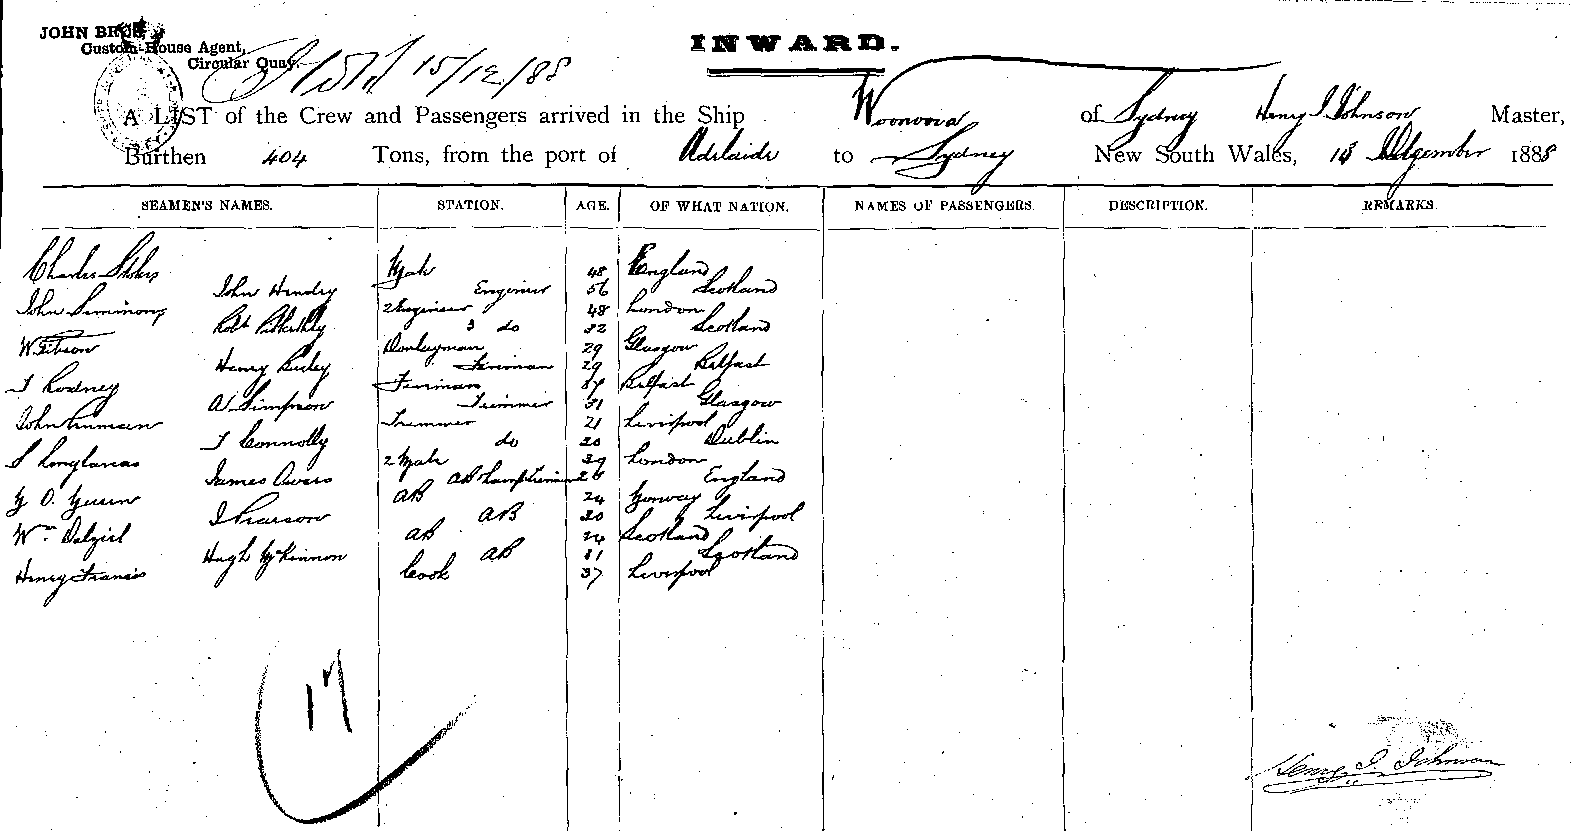 JOHN BROS,
Custom-House Agent,
Circular Quay.
15/12/88
INWARD.
A LIST of the Crew and Passengers arrived in the Ship Woonoona of Sydney Henry I Johnson Master,
Burthen 404 Tons, from the port of Adelaide to Sydney New South Wales, 1888
SEAMEN'S NAMES. STATION. AGE. OF WHAT NATION. NAMES OF PASSENGERS. DESCRIPTION. REMARKS.
Charles Stokes Mate 48 England
John Hendry Engineer 56 Scotland
John Simmons 2 Engineer 48 London
Robt 3 do 32 Scotland
W Gibson Donkeyman 29 Glasgow
Henry Fireman 29 Belfast
T Rodney Fireman Belfast
A Simpson Trimmer 31 Glasgow
John Trimmer 21 Liverpool
T Connolly do 20 Dublin
S 2 Mate 39 London
James Owens AB Lamptrimmer England
AB 24 Norway
I Pearson AB 30 Liverpool
Wm Dalziel AB 24 Scotland
Hugh McKinnon AB 31 Scotland
Henry Francis Cook 37 Liverpool
17
Henry I. Johnson